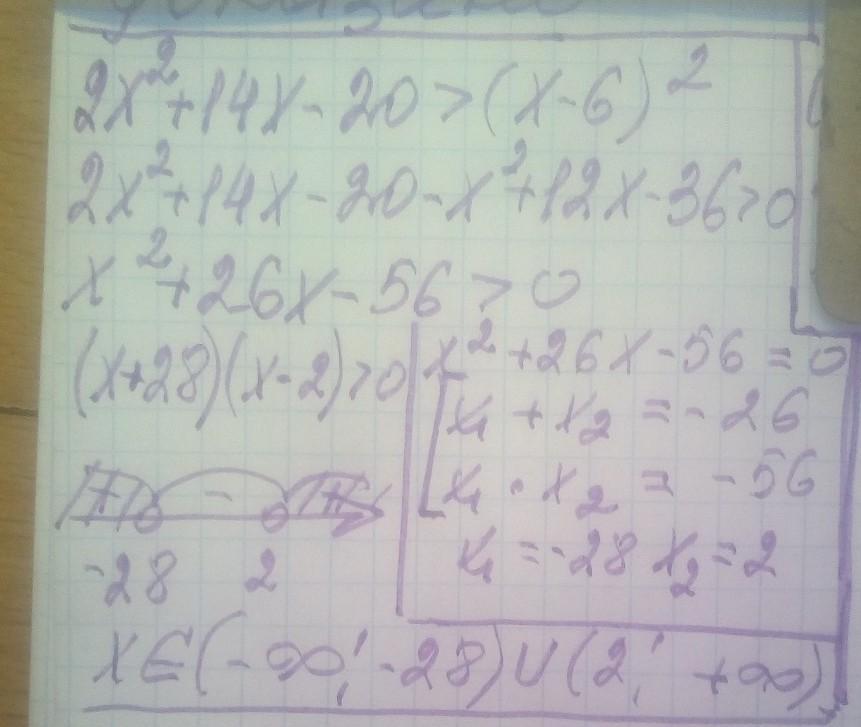 2x²+14x-20>(x-6)²
2x²+14x-20-x²+12x-36>0
x²+26x-56>0
(x+28)(x-2)>0
+ - +
-28 2
x²+26x-56=0
x₁+x₂=-26
x₁·x₂=-56
x₁=-28 x₂=2
x∈(-∞;-28)∪(2;+∞)